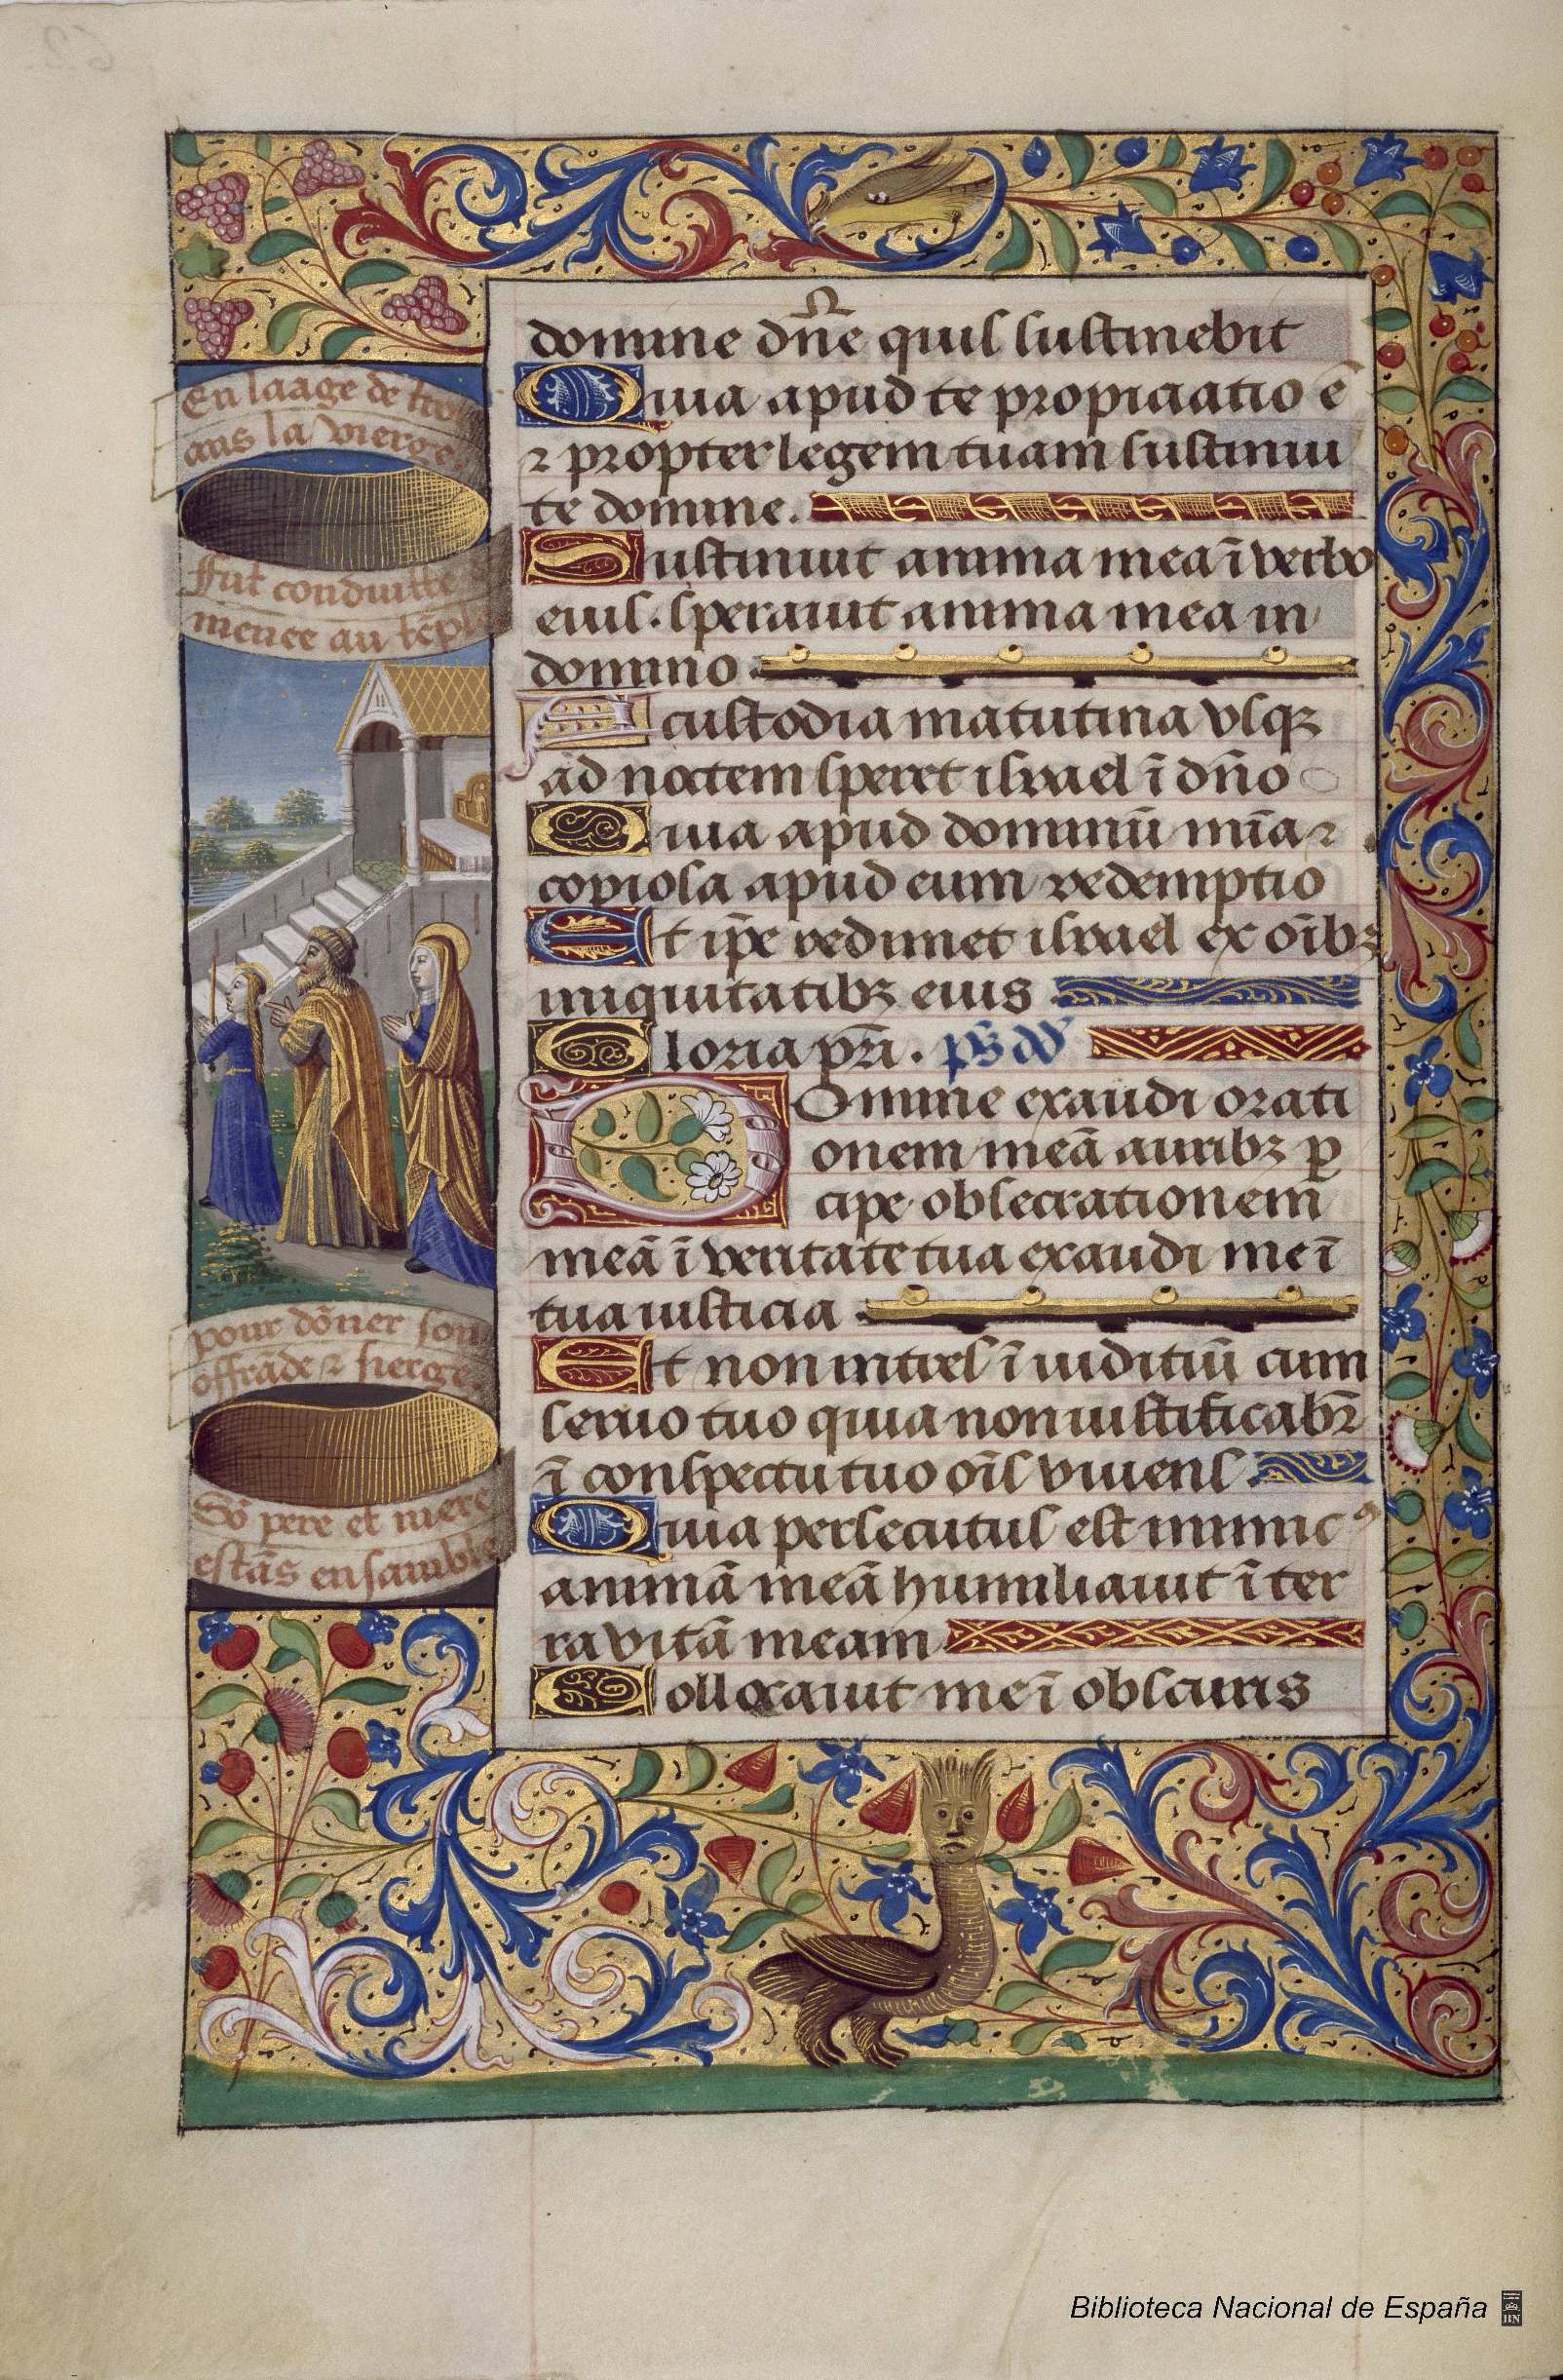 En laage de troi
ans la vierge
Fut conduitte &
menee au tēpl
pour dōner son
offrāde ⁊ sierge
Sō pere et mere
estās ensamble
domine dn̄e quis sustinebit
Quia apud te propiciatio ē
⁊ propter legem tuam sustinui
te domine.
Sustinuit anima mea ī verbo
eius. sperauit anima mea in
domino
A custodia matutina vsqꝫ
ad noctem speret israel ī dn̄o
Quia apud dominū mīa ⁊
copiosa apud eum redemptio
Et ip̄e redimet israel ex oībꝫ
iniquitatibꝫ eius
Gloria pr̄i. ps dd
Domine exaudi orati
onem meā auribꝫ ꝑ
cipe obsecrationem
meā ī veritate tua exaudi me ī
tua iusticia
Et non intres ī iuditiū cum
seruo tuo quia non iustificabr̄
ī conspectu tuo oīs viuens.
Quia persecutus est inimicꝰ
animā meā humiliauit ī ter
ra vitā meam
Collocauit me ī obscuris
Biblioteca Nacional de España
BN